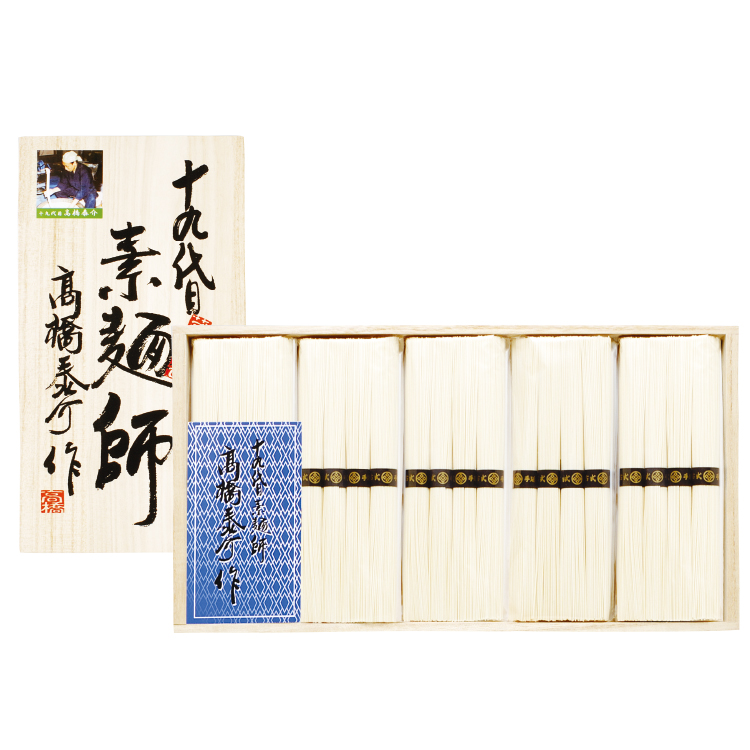 十九代目
素麺師
髙橋泰介作
十九代目 髙橋泰介
髙橋
十九代目素麺師
髙橋泰介作